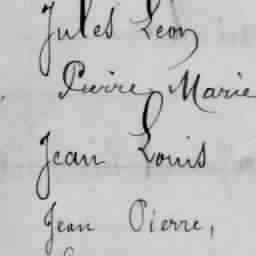 Jules Leon
Pierre Marie
Jean Louis
Jean Pierre,